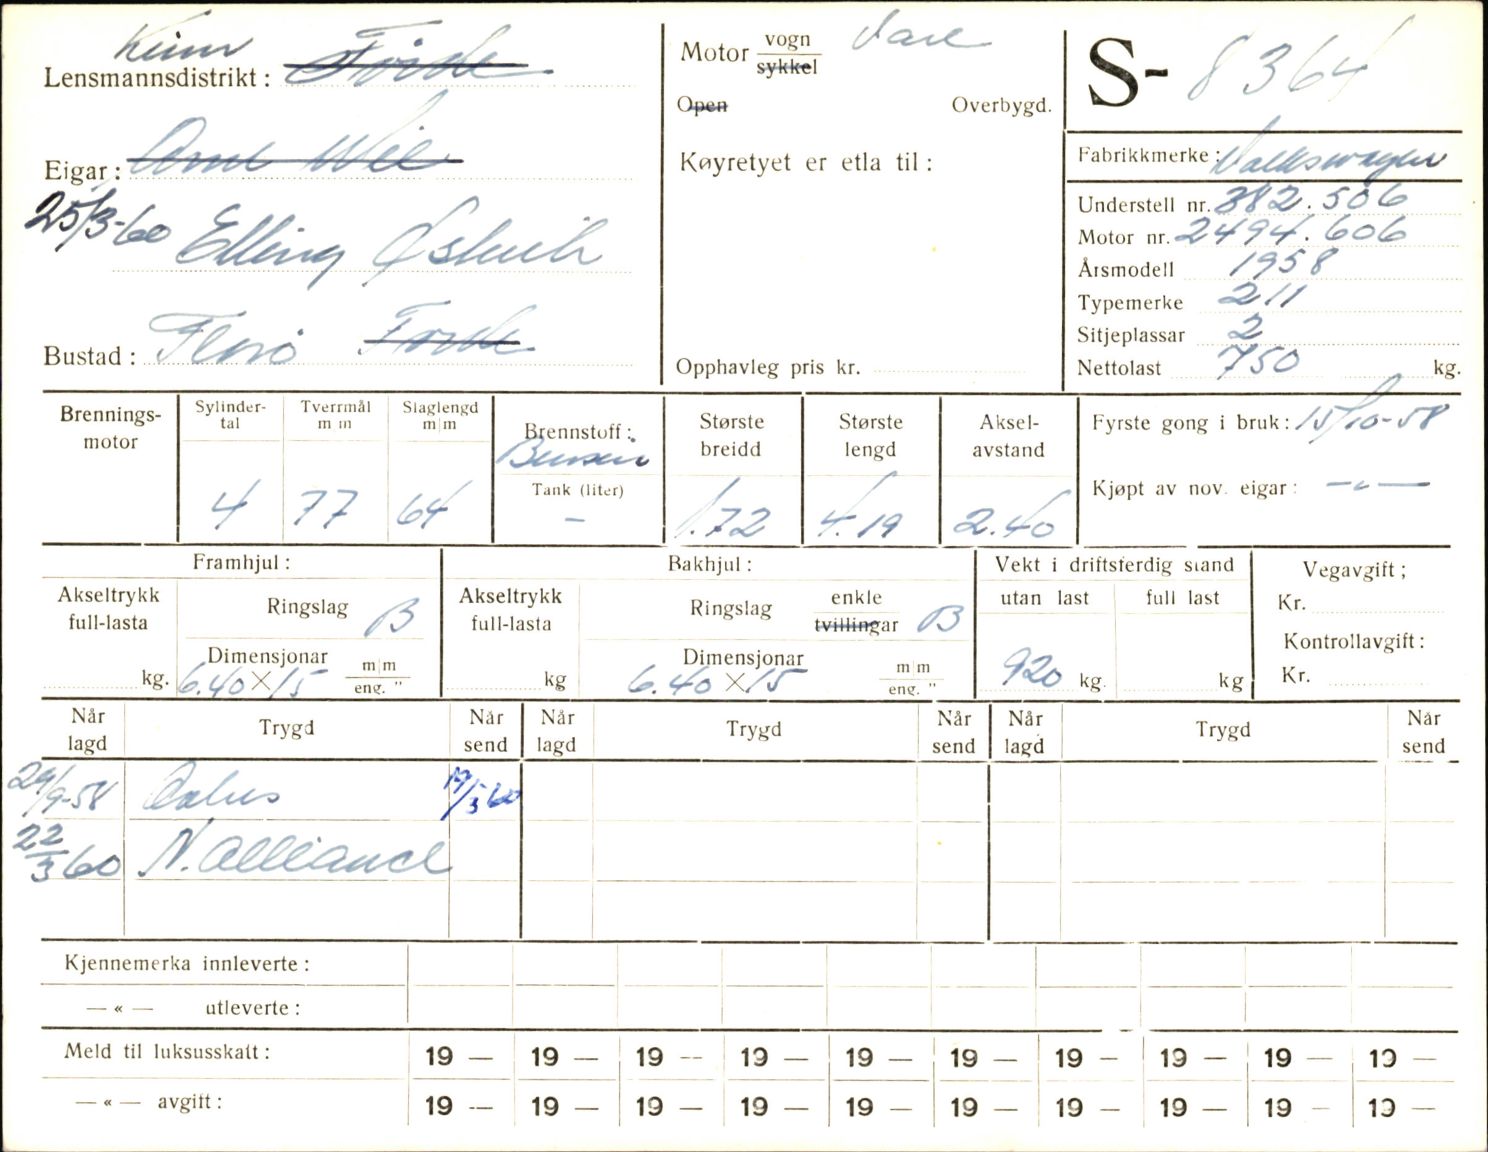 Kinn
Lensmannsdistrikt : Förde
Eigar : Arne Wie
25/3-60 Elling
Bustad : Florø Förde
Motor vogn Vare
sykkel
Open Overbygd.
Køyretyet er etla til :
Opphavleg pris kr.
S- 8364
Fabrikkmerke : Volkswagen
Understell nr. 382.506
Motor nr. 2494.606
Årsmodell 1958
Typemerke 211
Sitjeplassar 2
Nettolast 750 kg.
Brennings-motor
Sylinder-tal 4
Tverrmål m m 77
Slaglengd m|m 64
Brennstoff : Bensin
Tank (liter) -
Største breidd 1.72
Største lengd 4.19
Aksel-avstand 2.40
Fyrste gong i bruk : 15/10-58
Kjøpt av nov. eigar : — " —
Framhjul :
Akseltrykk full-lasta kg.
Ringslag B
Dimensjonar 6.40 x 15 m|m eng. "
Bakhjul :
Akseltrykk full-lasta kg
Ringslag enkle tvillingar B
Dimensjonar 6.40 x 15 m|m eng. "
Vekt i driftsferdig stand
utan last 920 kg.
full last kg
Vegavgift ;
Kr.
Kontrollavgift :
Kr.
Når lagd Trygd Når send Når lagd Trygd Når send Når lagd Trygd Når send
29/9-58
22/3 60 N. Alliance
Kjennemerka innleverte :
— « — utleverte :
Meld til luksusskatt : 19 — 19 — 19 — 19 — 19 — 19 — 19 — 19 — 19 — 19 —
— « — avgift : 19 — 19 — 19 — 19 — 19 — 19 — 19 — 19 — 19 — 19 —